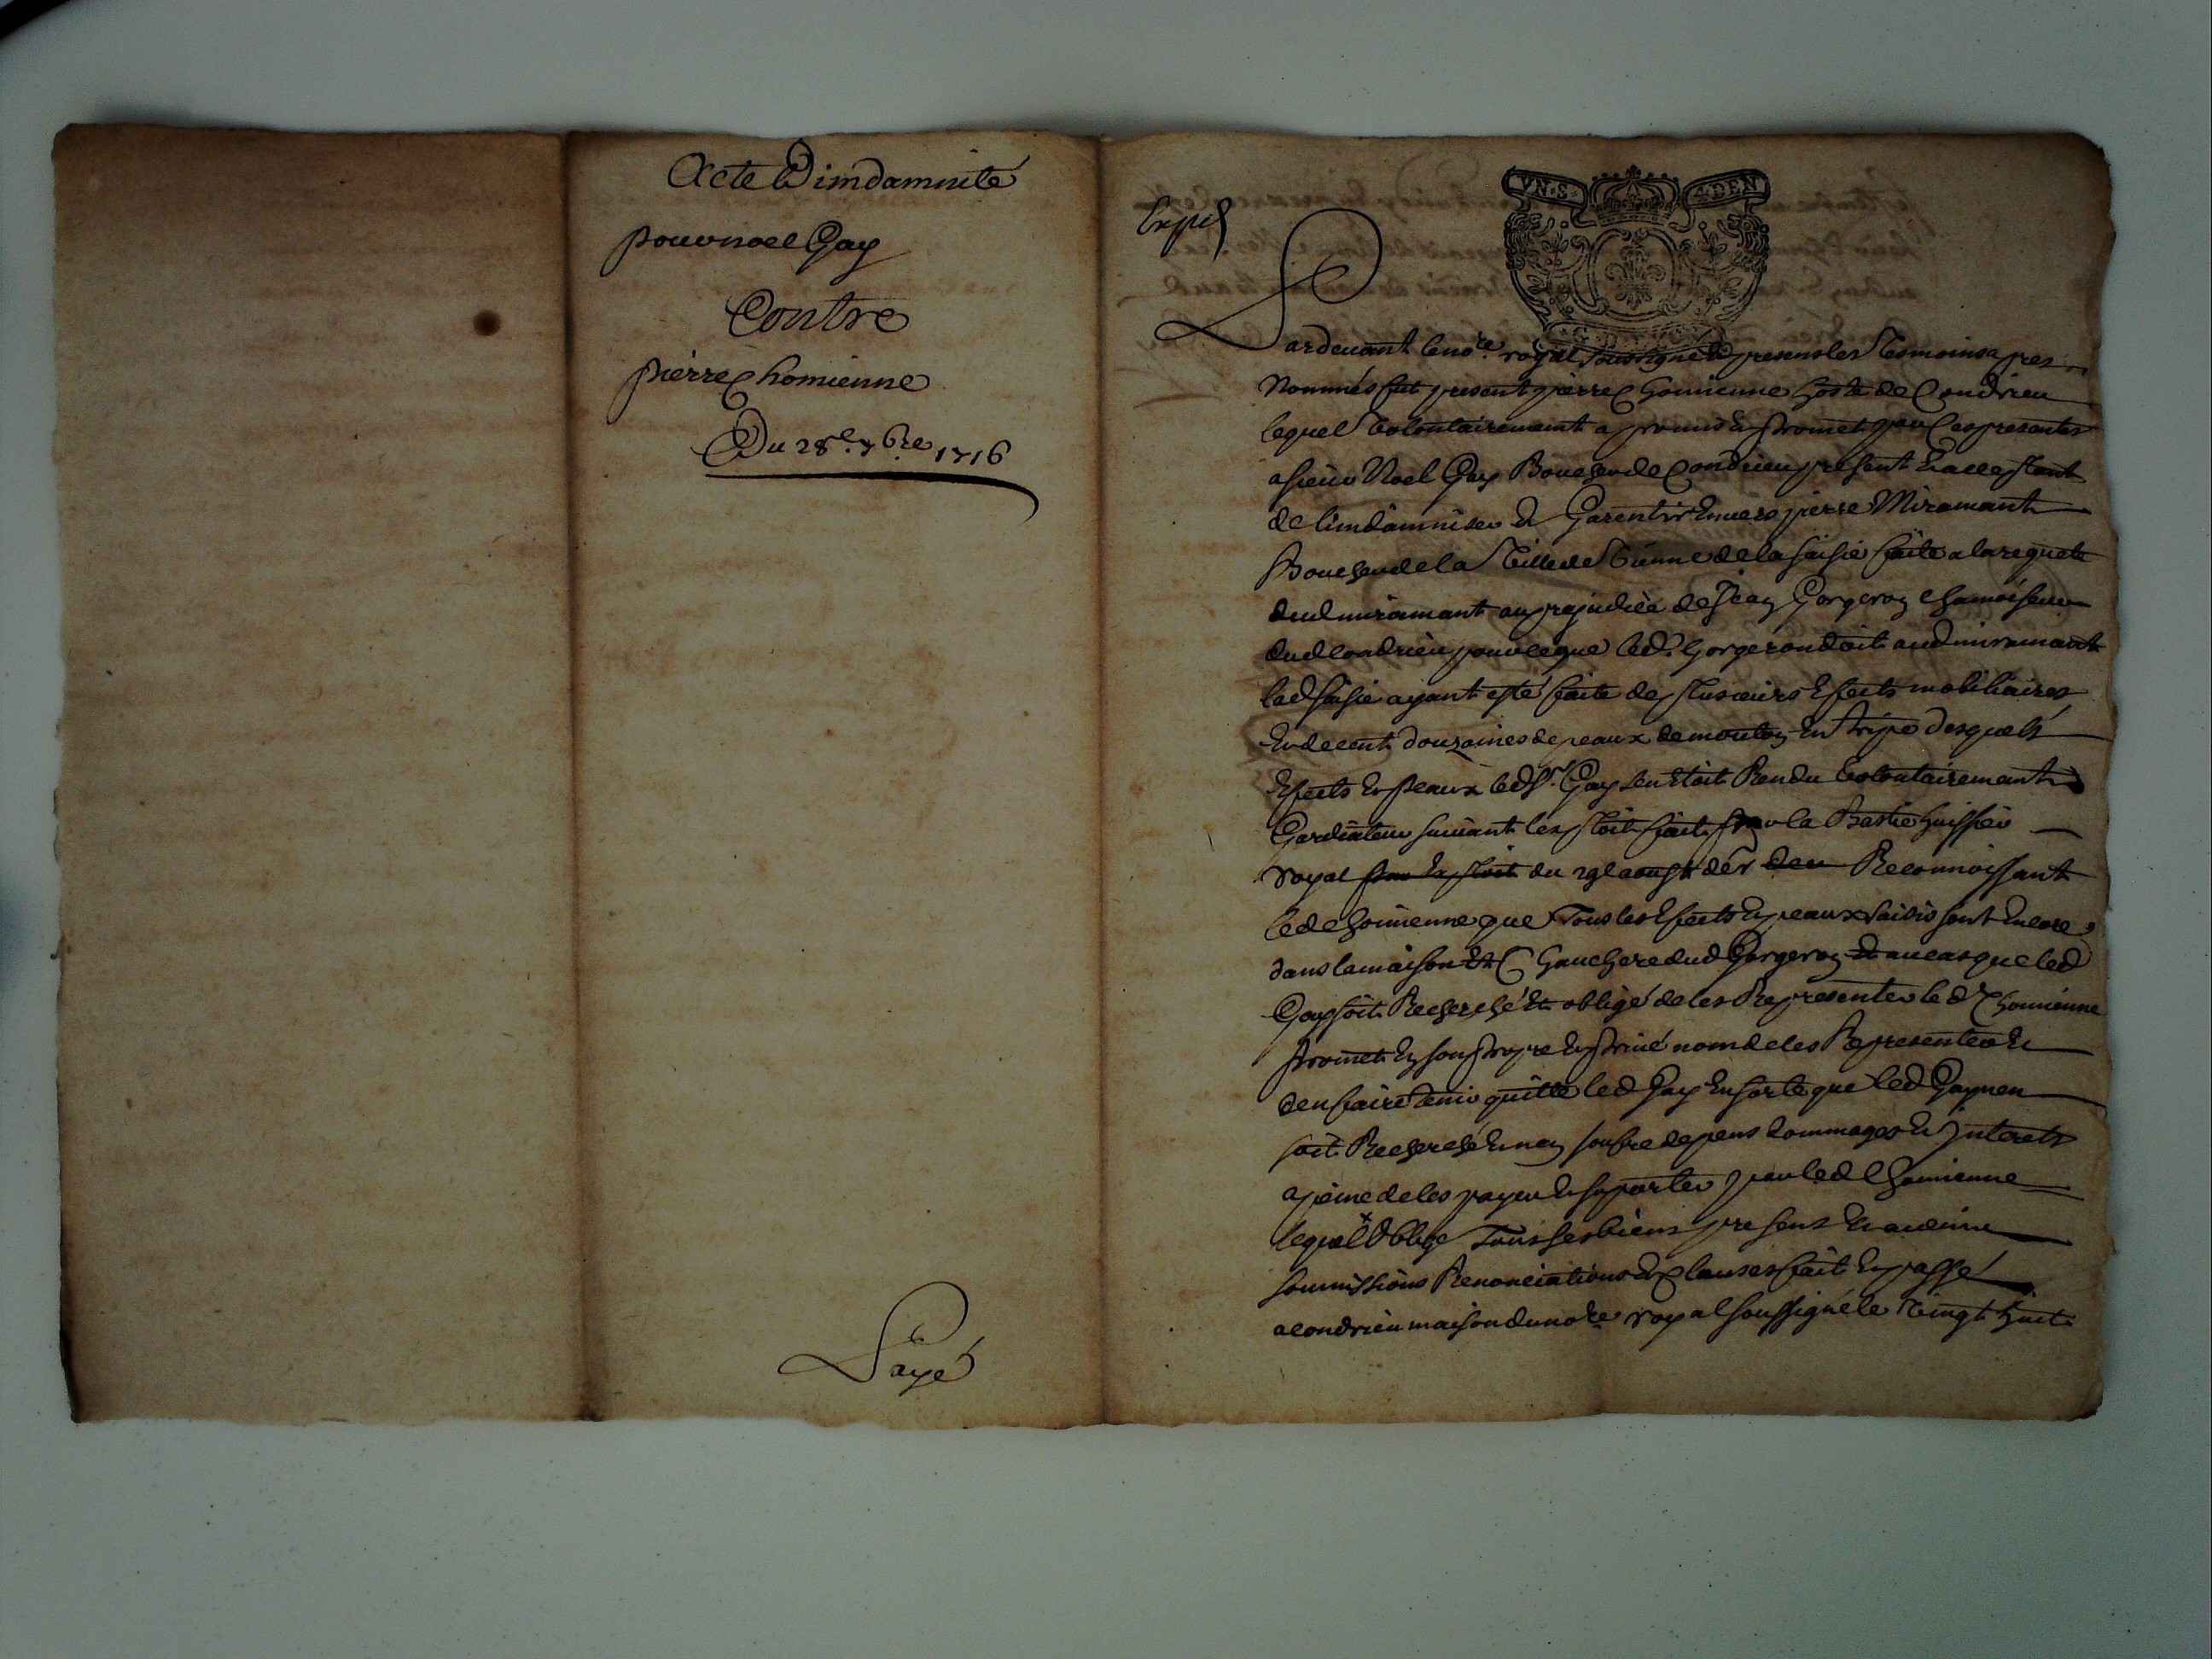 Acte Dindamnité
pour noel Gay
Contre
pierre Chomienne
Du 28e. 7bre 1716
Payé
Expé
VN·S· 4·DEN
Pardeuant le nore. royal soussigné & presens les tesmoins apres
Nommés fut present pierre Chomienne hoste de Condrieu
lequel volontairement a promis & promet par ces presentes
a sieur Noel Gay Boucher de Condrieu present & acceptant
de lindamniser & Garentir Enuers pierre Miramant
Boucher de la Ville de Vienne de la saisie faite a la requete
dud miramant au prejudice de Jean Gorgeron chamoiseur
dud Condrieu pour ce que led. Gorgeron doit aud miramant
lad saisie ayant esté faite de plusieurs Efects mobiliaires
& de cent douzaines de peaux de mouton En tripe desquels
Efects & peaux led Sr. Gay sen Etoit Rendu volontairemant
Gardiateur suiuant lexploit fait par la Bastie huissier
royal du 29e aoust der Reconnoissant
led Chomienne que Tous les Efects & peaux saisis sont Encore
dans la maison Et Gauchere dud Gorgeron & au cas que led
Gay soit Recherché Et obligé de les Representer led Chomienne
promet En son propre & priué nom de les Representer &
den faire Tenir quitte led Gay En sorte que led Gay nen
soit Recherché & nen soufre depens dommages & Interets
a peine de les payer & suporter par led Chomienne
lequel Oblige Tous ses biens presens & auenir
soumissions Renonciations & Clauses fait & passé
a Condrieu maison du nore royal soussigné le vingt huit